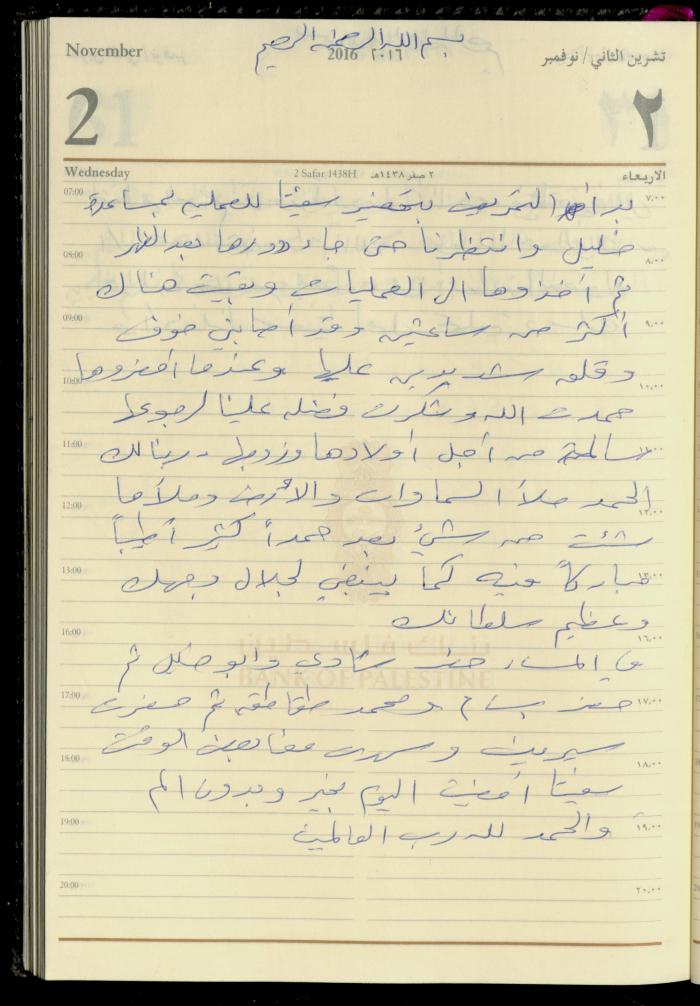 بسم الله الرحمن الرحيم
November 2016 ٢٠١٦ تشرين الثاني/ نوفمبر
2 ٢
Wednesday 2 Safar 1438H ٢ صفر ١٤٣٨هـ الاربعاء
07:00 بدأ التمريض بتحضير سفيتا للعملية بمساعدة ٧,٠٠
خليل وانتظرنا حتى جاء دورها بعد الظهر
08:00 ٨,٠٠
ثم أخذوها الى العمليات وبقيت هناك
09:00 أكثر من ساعتين وقد أصابني خوف ٩,٠٠
وقلق شديدين عليها وعندما احضروها
10:00 ١٠,٠٠
حمدت الله وشكرت فضله علينا لرجوعها
11:00 سالمة من أجل أولادها وزوجها. ربنا لك ١١,٠٠
الحمد ملأ السماوات والأرض وملأ ما
12:00 ١٢,٠٠
شئت من شيئ بعد حمداً كثيراً طيباً
13:00 مباركاً فيه كما ينبغي لجلال وجهك ١٣,٠٠
وعظيم سلطانك
16:00 ١٦,٠٠
في المساء حضر شادي وابو خليل ثم
بنك فلسطين
BANK OF PALESTINE
17:00 حضر بسام ومحمد طقاطقه ثم حضرت ١٧,٠٠
سيرين وسهرت معنا بعض الوقت
18:00 ١٨,٠٠
سفيتا أمضت اليوم بخير وبدون الم
19:00 والحمد لله رب العالمين ١٩,٠٠
20:00 ٢٠,٠٠